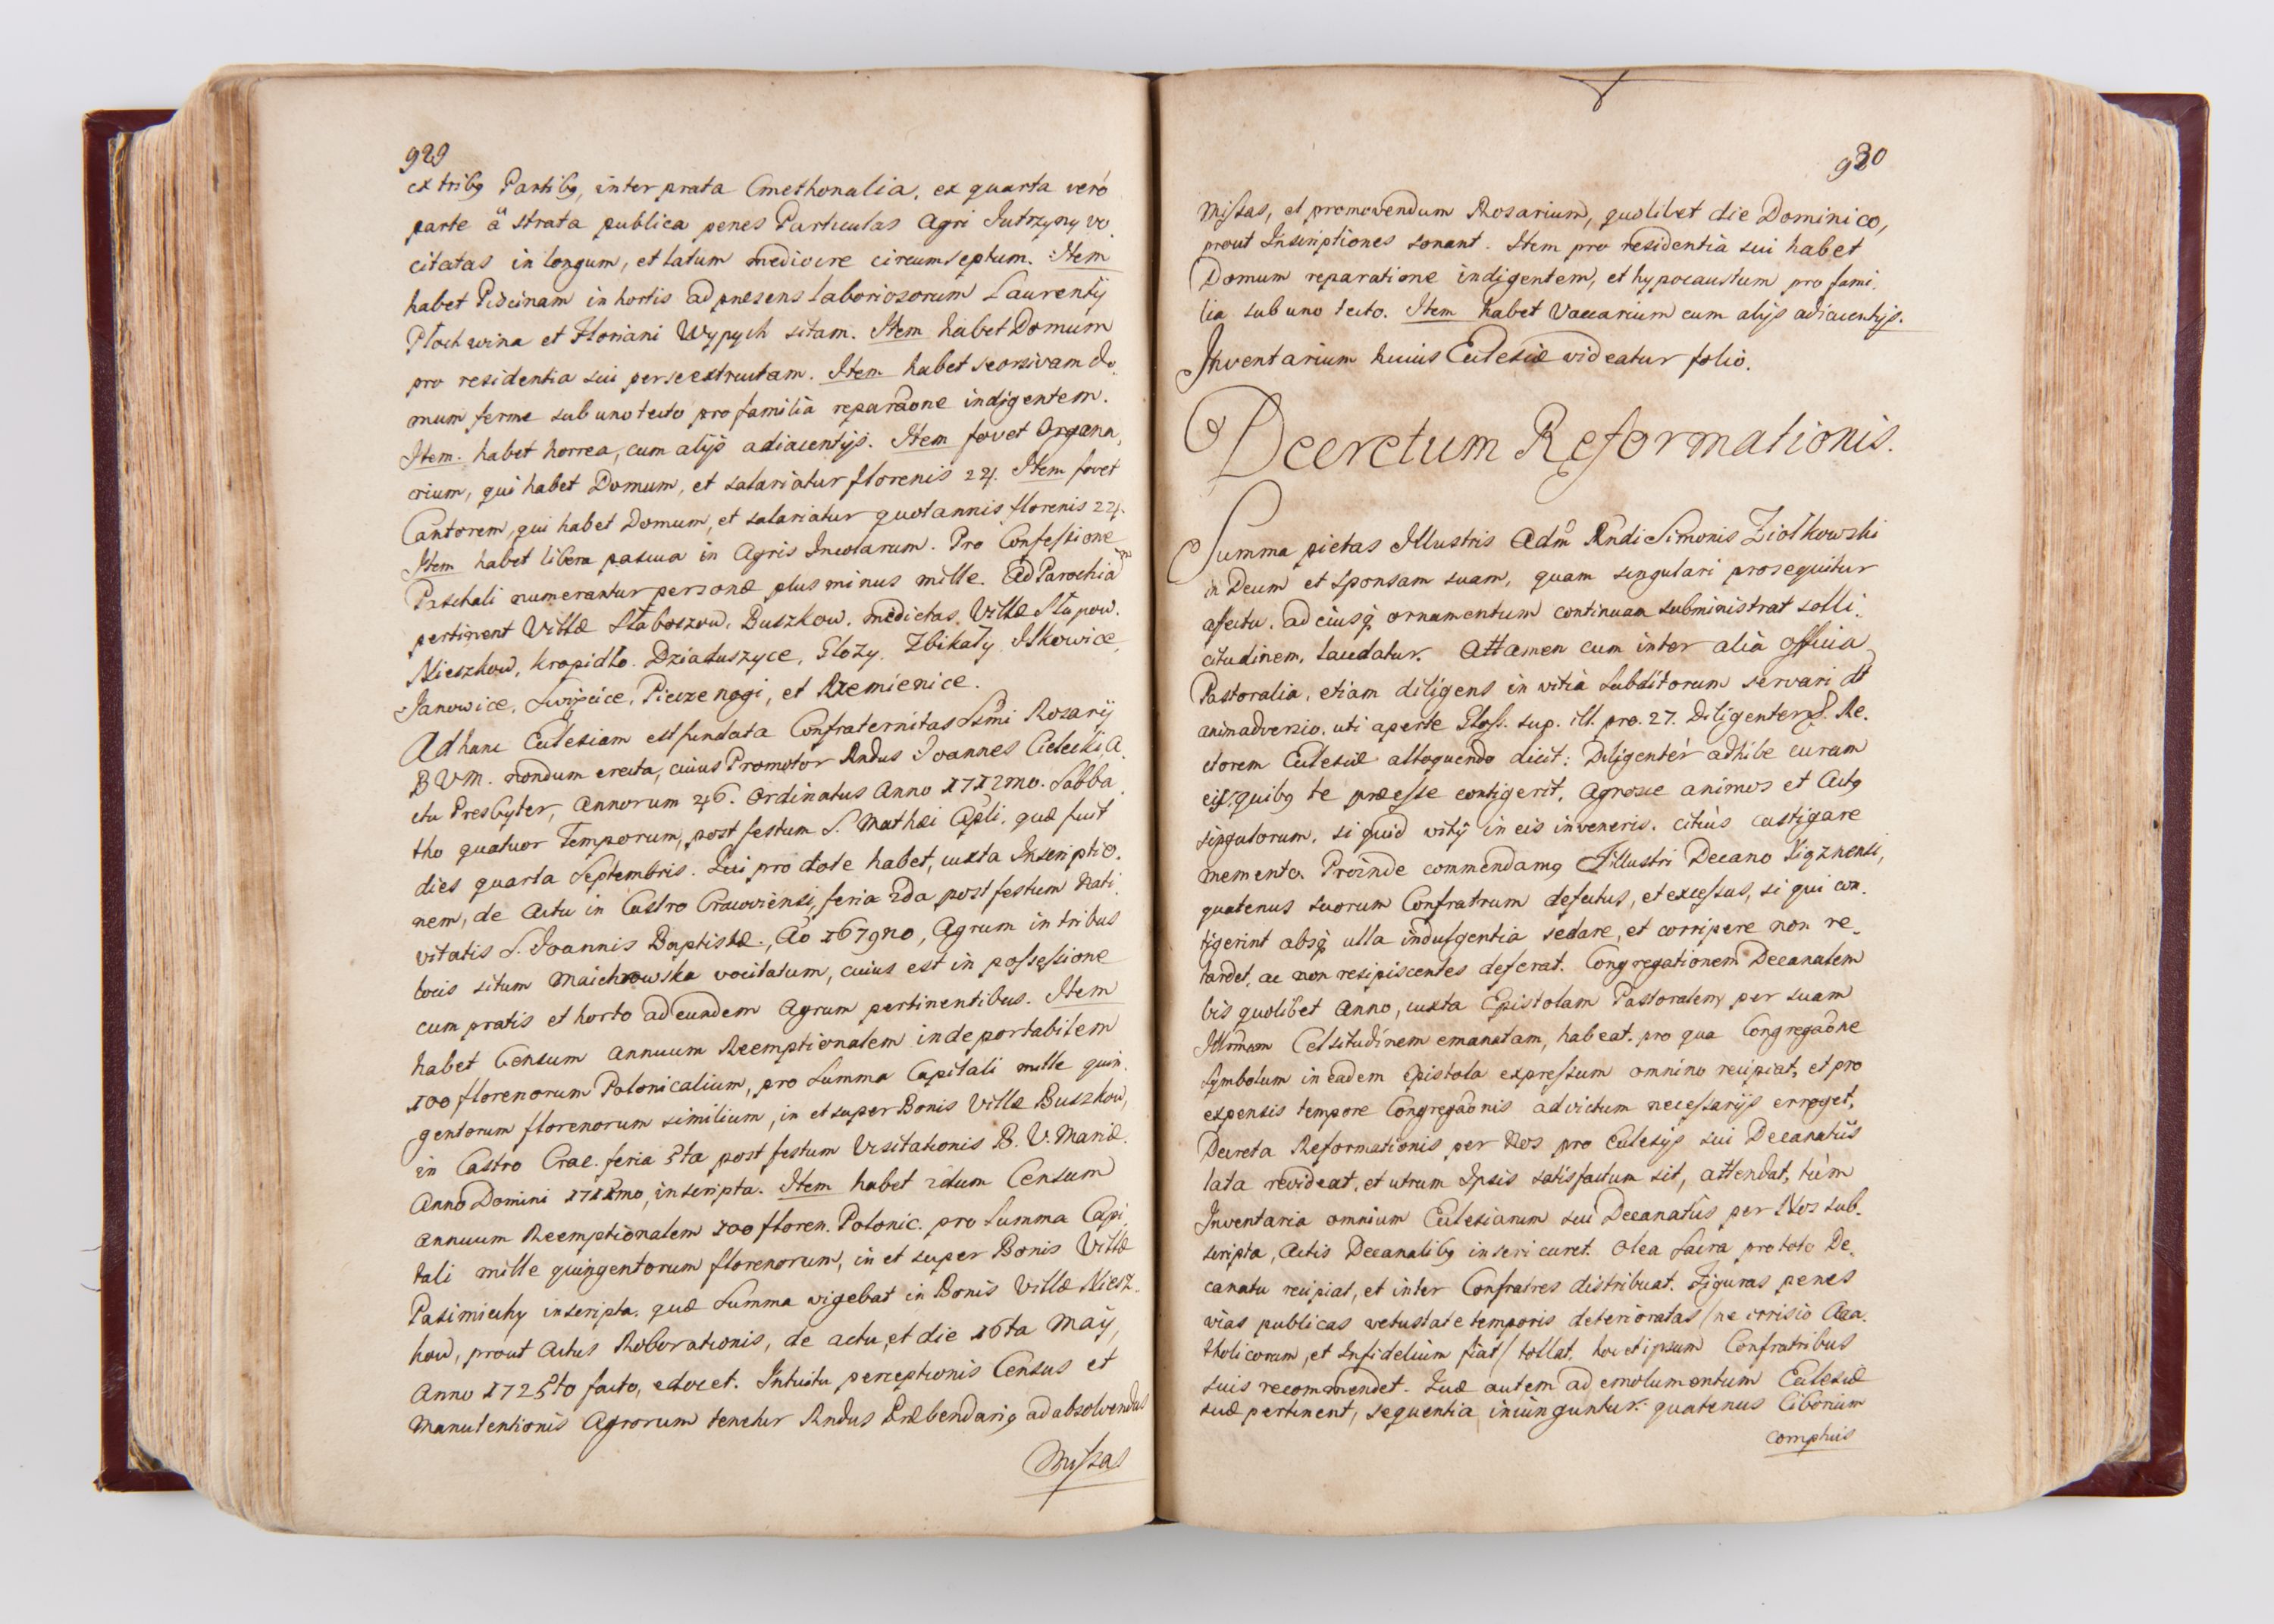 929
ex tribꝯ Partibꝯ, inter prata Cmethonalia, ex quarta verò
parte ä strata publica penes Particulas Agri Jutrzyny vo.
citatas in longum, et latum mediocre circumseptum. Item
habet Piscinam in hortis ad præsens laboriosorum Laurentij
Płochwina et Floriani Wypych sitam. Item habet Domum
pro residentia sui per se extructam. Item habet seorsivam do.
mum ferme sub uno tecto pro familia reparãone indigentem.
Item. habet horrea, cum alijs adiacentijs. Item fovet Organa,
rium, qui habet Domum, et salariatur florenis 24. Item fovet
Cantorem, qui habet Domum, et salariatur quotannis florenis 24.
Item habet libera pascua in Agris Incolarum. Pro Confessione
Paschali numerantur personæ plus minus mille. Ad Parochiam
pertinent Villæ Słaboszow, Buszkow, medietas Villæ Słupow.
Nieszkow, kropidło. Dziaduszyce, Głozy. Zbikały Ilkowice,
Janowice, Swięcice, Pieczenogi, et Rzemienice.
Ad hanc Ecclesiam est fundata Confraternitas Ssmi Rosarij
B V M. nondum erecta, cuius Promotor Rndus Joannes Cielecki A.
ctu Presbyter, Annorum 46. Ordinatus Anno 1712mo. Sabba.
tho quatuor Temporum, post festum S. Mathæi Apli, quæ fuit
dies quarta Septembris. Qui pro dote habet, iuxta Inscriptio.
nem, de Actu in Castro Cracoviensi, feria 2da post festum Nati.
vitatis S. Joannis Baptistæ., Ao 1679no, Agrum in tribus
locis situm Maichrowska vocitatum, cuius est in possessione
cum pratis et horto ad eundem Agrum pertinentibus. Item
habet Censum annuum Reemptionalem inde portabilem
100 florenorum Polonicalium, pro Summa Capitali mille quin.
gentorum florenorum similium, in et super Bonis Villæ Buszkow,
in Castro Crac. feria 5ta post festum Visitationis B. V. Mariæ.
Anno Domini 1712mo, inscripta. Item habet 2dum Censum
annuum Reemptionalem 100 floren. Polonic. pro Summa Capi.
tali mille quingentorum florenorum, in et super Bonis Villæ
Pasimiechy inscripta. quæ Summa vigebat in Bonis Villæ Niesz.
kow, prout Actus Roborationis, de actu, et die 16ta Maÿ,
Anno 1725to facto, edocet. Intuitu perceptionis Census et
Manutentionis Agrorum tenetur Rndus Præbendariꝯ ad absolvendas
Missas
930
Missas, et promovendum Rosarium, quolibet die Dominico,
prout Inscriptiones sonant. Item pro residentia sui habet
Domum reparatione indigentem, et hypocaustum pro fami.
lia sub uno tecto. Item habet Vaccarium cum alijs adiacentijs.
Inventarium huius Ecclesiæ videatur folio.
Decretum Reformationis.
Summa pietas Illustris Adm Rndi Simonis Ziołkowski
in Deum et Sponsam suam, quam singulari prosequitur
afectu. ad eiusq̨ ornamentum continuam subministrat solli.
citudinem, laudatur. Attamen cum inter alia officia
Pastoralia, etiam diligens in vitia Subditorum servari dt
animadversio. uti aperte Gloss. sup. ill. pro. 27. Diligenter Re.
ctorem Ecclesiæ alloquendo dicit: Diligentèr adhibe curam
eis, quibꝯ te præesse contigerit, agnosce animos et Actꝯ
singulorum, si quid vitÿ in eis inveneris. citiùs castigare
memento. Proinde commendamꝯ Illustri Decano Xiąznensi,
quatenus suorum Confratrum defectus, et excessus, si qui con.
tigerint absq̨ ulla indulgentia sedare, et corripere non re.
tardet, ac non resipiscentes deferat. Congregationem Decanalem
bis quolibet Anno, iuxta Epistolam Pastoralem per suam
Illmam Celsitudinem emanatam, habeat. pro qua Congregaõne
Symbolum in eadem Epistola expressum omnino recipiat, et pro
expensis tempore Congregaõnis ad victum necessarijs erroget,
Decreta Reformationis per Nos pro Ecclesijs sui Decanatûs
lata revideat, et utrum Ipsis satisfactum sit, attendat, tùm
Inventaria omnium Ecclesiarum sui Decanatûs per Nos sub.
scripta, Actis Decanalibꝯ inseri curet. Olea Sacra pro toto De.
canatu recipiat, et inter Confratres distribuat. Figuras penes
vias publicas vetustate temporis deterioratas /ne irrisio Aca.
tholicorum, et Infidelium fiat/ tollat. hoc et ipsum Confratribus
suis recommendet. Quæ autem ad emolumentum Ecclesiæ
suæ pertinent, sequentia iniunguntur: quatenus Ciborium